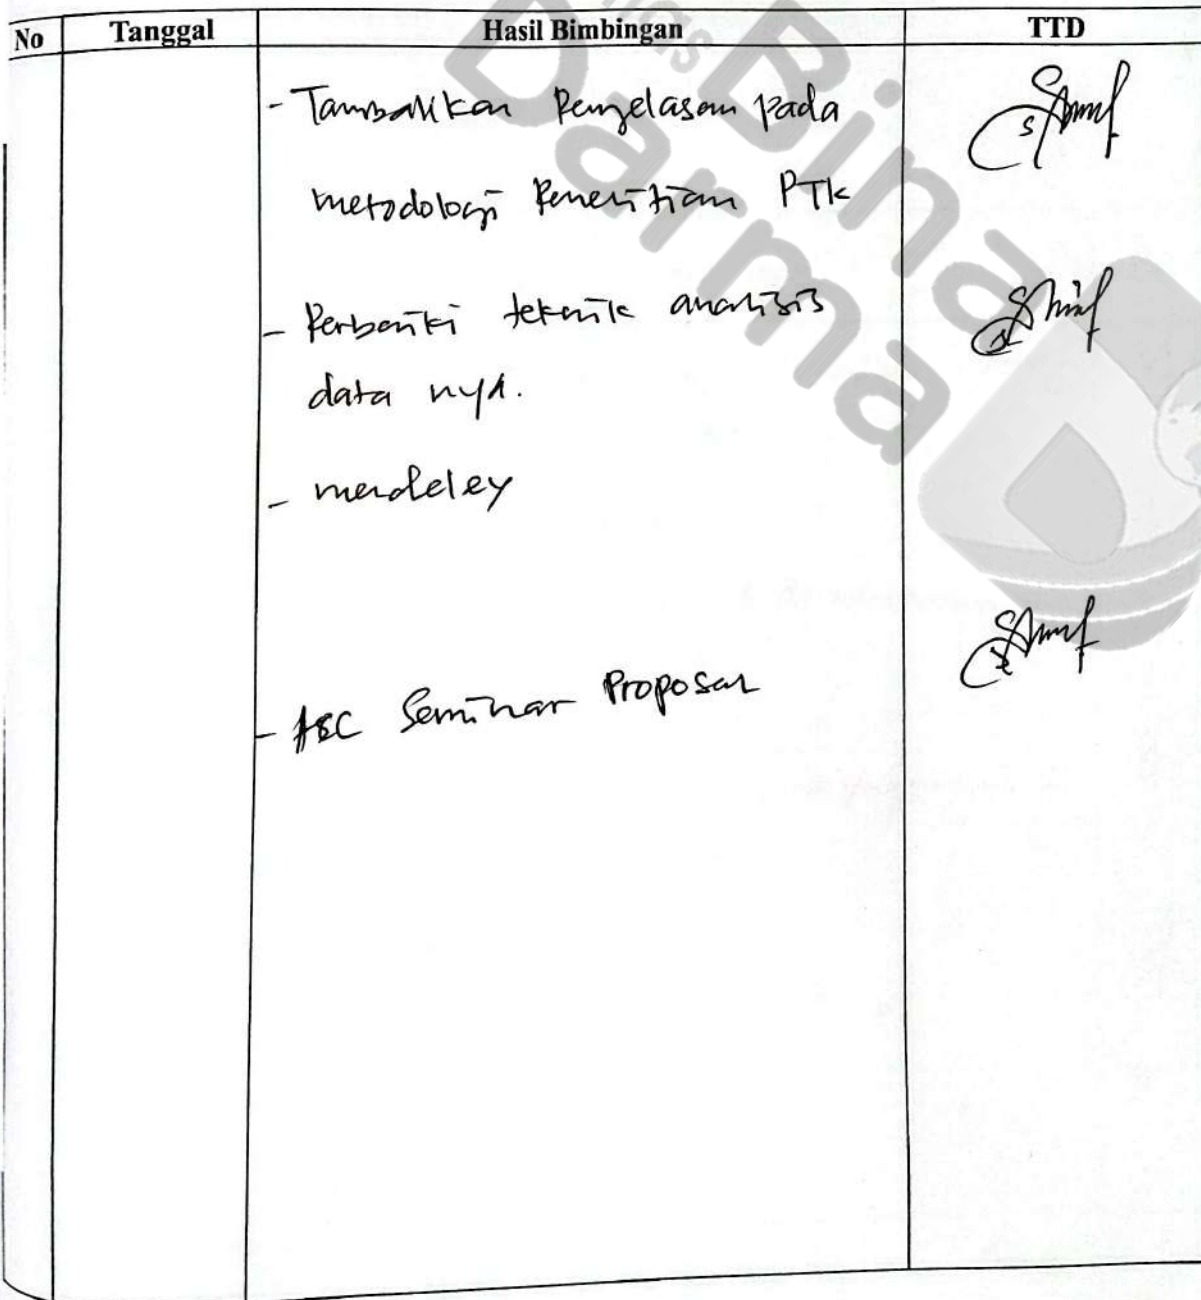 No Tanggal Hasil Bimbingan TTD
- Tambahkan Penjelasan pada
metodologi Penelitian PTK
- Perbaiki teknik analisis
data nya.
- mendeley
- ACC Seminar Proposal
Bina
Darma